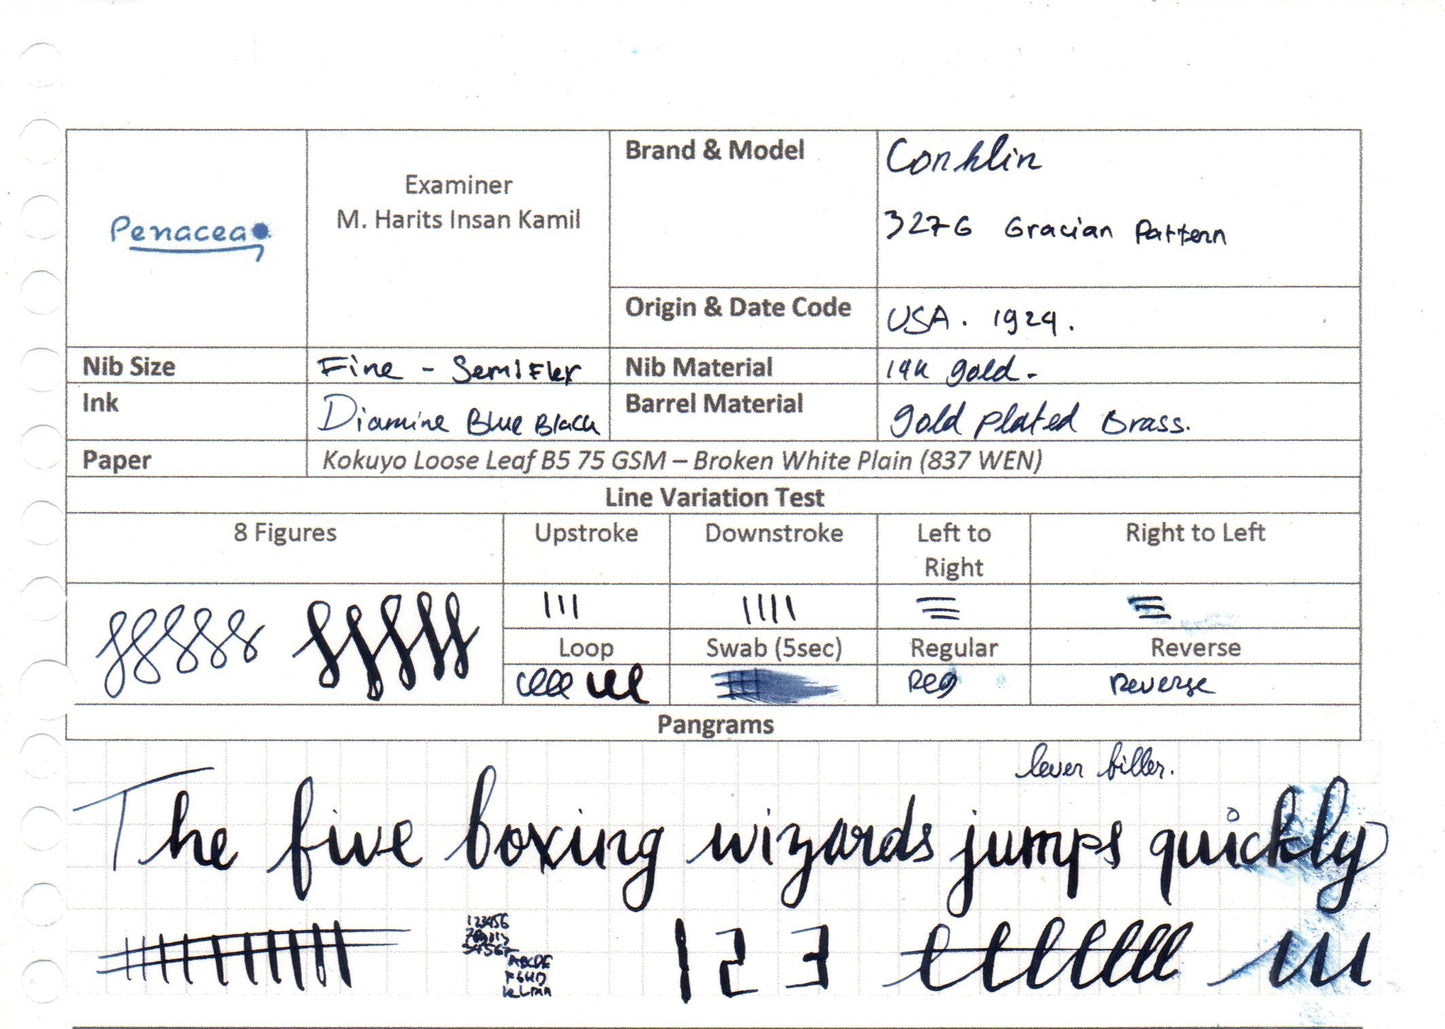 Penacea
Examiner
M. Harits Insan Kamil
Brand & Model
Conklin
327G Gracian Pattern
Origin & Date Code
USA. 1924.
Nib Size
Fine - SemiFlex
Nib Material
14K gold.
Ink
Diamine Blue Black
Barrel Material
gold plated Brass.
Paper
Kokuyo Loose Leaf B5 75 GSM – Broken White Plain (837 WEN)
Line Variation Test
8 Figures
Upstroke
Downstroke
Left to
Right
Right to Left
Loop
Swab (5sec)
Regular
Reverse
Reg
Reverse
Pangrams
lever filler.
The five boxing wizards jumps quickly
123456
ABCDE
FGHD
1 2 3